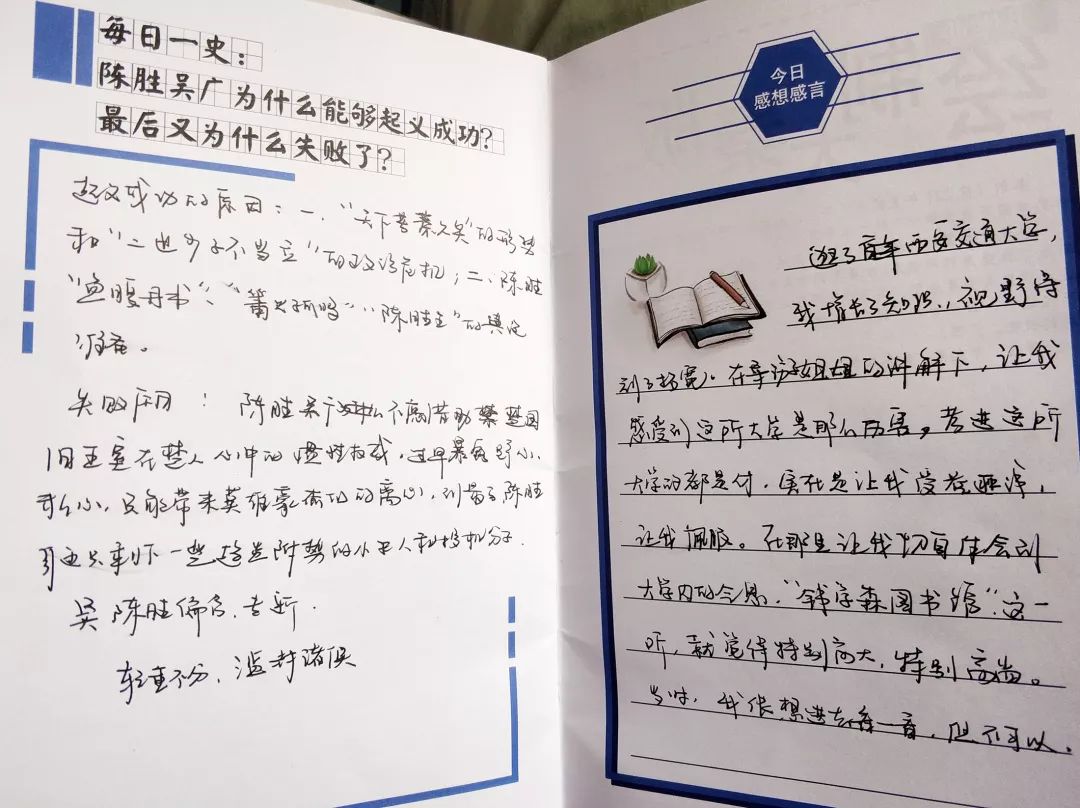 每日一史：
陈胜吴广为什么能够起义成功？
最后又为什么失败了？
起义成功的原因：一、“天下苦秦久矣”的形势
和“二世少子不当立”的政治危机；二、陈胜
“鱼腹丹书”、“篝火狐鸣”“陈胜王”的
失败原因：陈胜吴广不借助楚国
旧王室在楚人心中的惯性权威，过早暴露野心、
私心，只能带来英雄豪杰的离心，到最后陈胜
身边只剩下一些趋炎附势的小人和投机分子．
吴 陈胜偏多．
轻重不分，诸侯
今日
感想感言
逛了百年西安交通大学，
我增长了知识，视野得
到了拓宽。在学姐的讲解下，让我
感受到这所大学是那么厉害。考进这所
大学的都是，实在是让我
让我佩服。在那里让我切身体会到
大学内的“钱学森图书馆”这一
听，就觉得特别高大，特别高端。
当时，我很想进去看一看，但不可以．